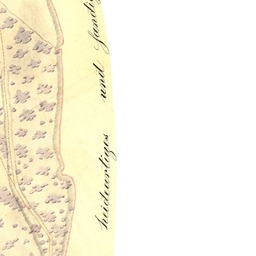 heideartiges und sandig